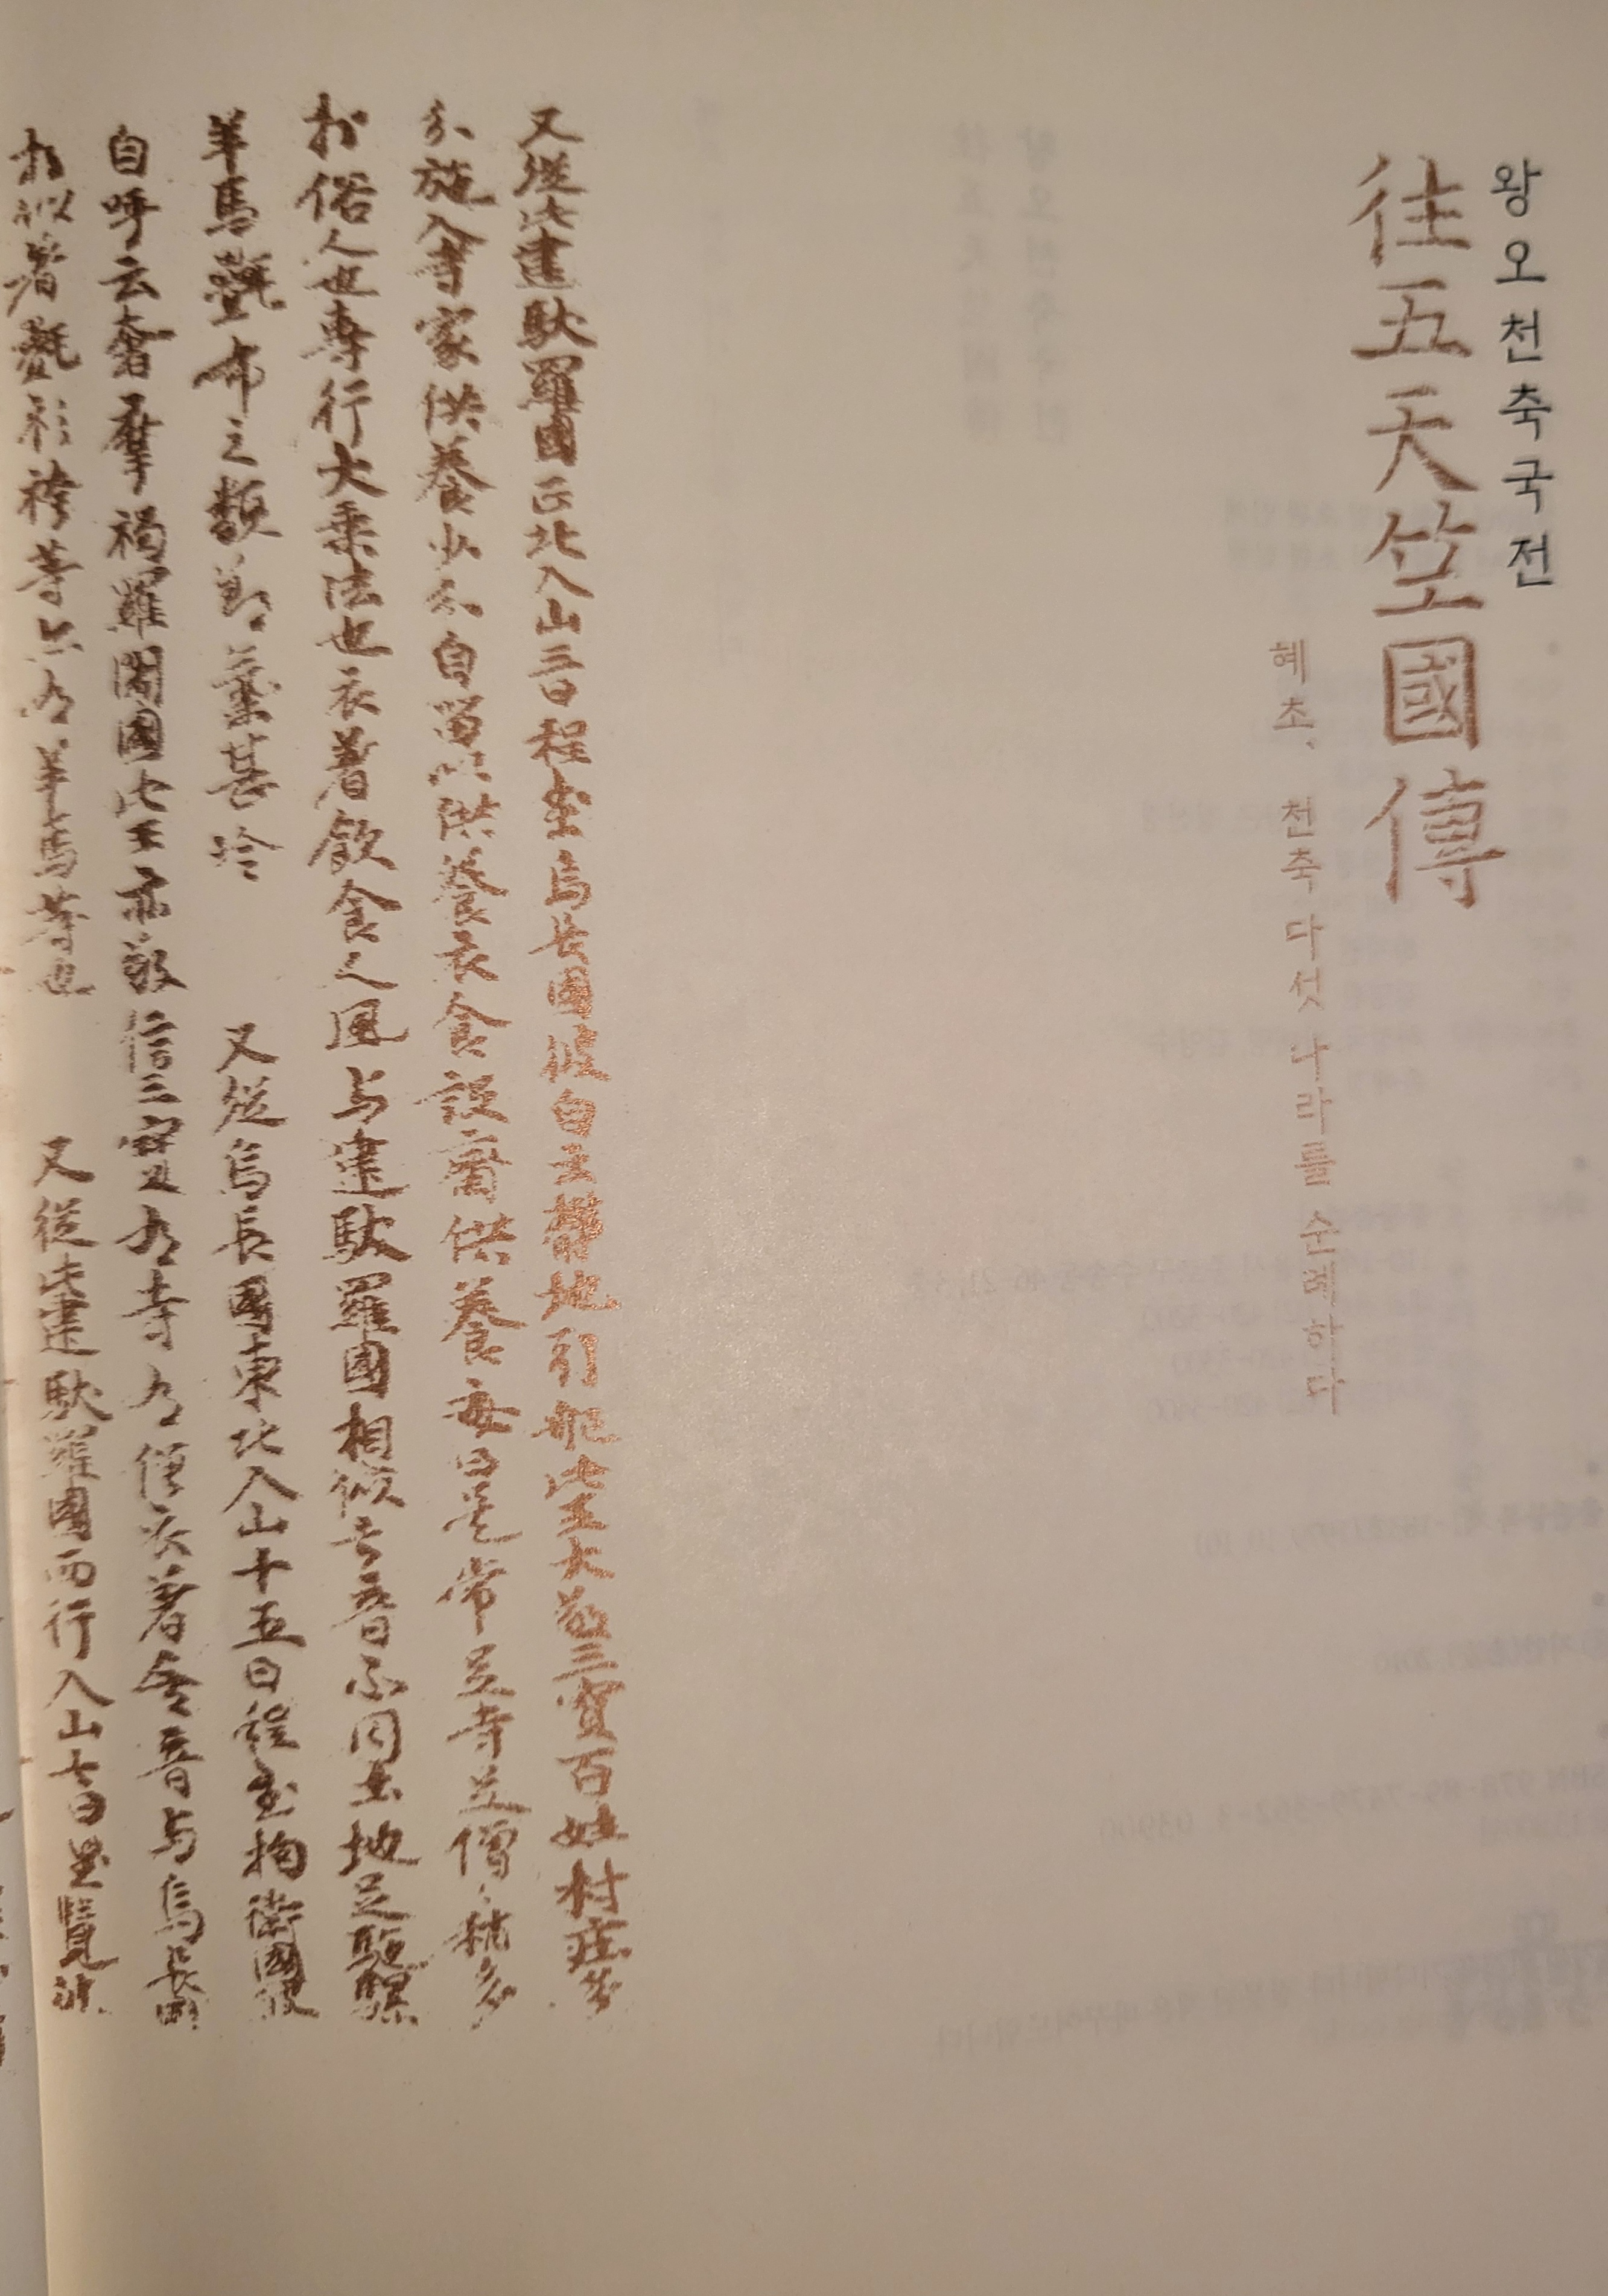 왕오천축국전
往五天竺國傳
혜초, 천축 다섯 나라를 순례하다
又從此建馱羅國正北入山三日程至烏長國彼自云欝地引那此王大敬三寶百姓村莊多
分施入寺家供養少分自留以供養衣食設齋供養每日是常足寺足僧々稍多
於俗人也專行大乘法也衣著飲食人風与建馱羅國相似言音不同土地足駞騾
羊馬氎布之類節氣甚冷 又從烏長國東北入山十五日程至拘衛國彼
自呼云奢摩褐羅闍國此王亦敬信三寶有寺有僧衣著言音与烏長國
相似著氎衫袴等亦有羊馬等也 又從此建馱羅國西行入山七日至覽波